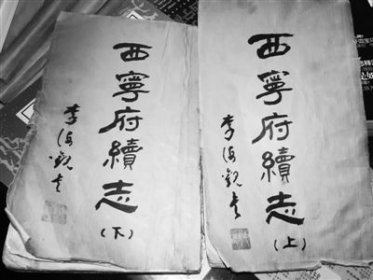 西寧府續志
（下）
李海觀
西寧府續志
（上）
李海觀